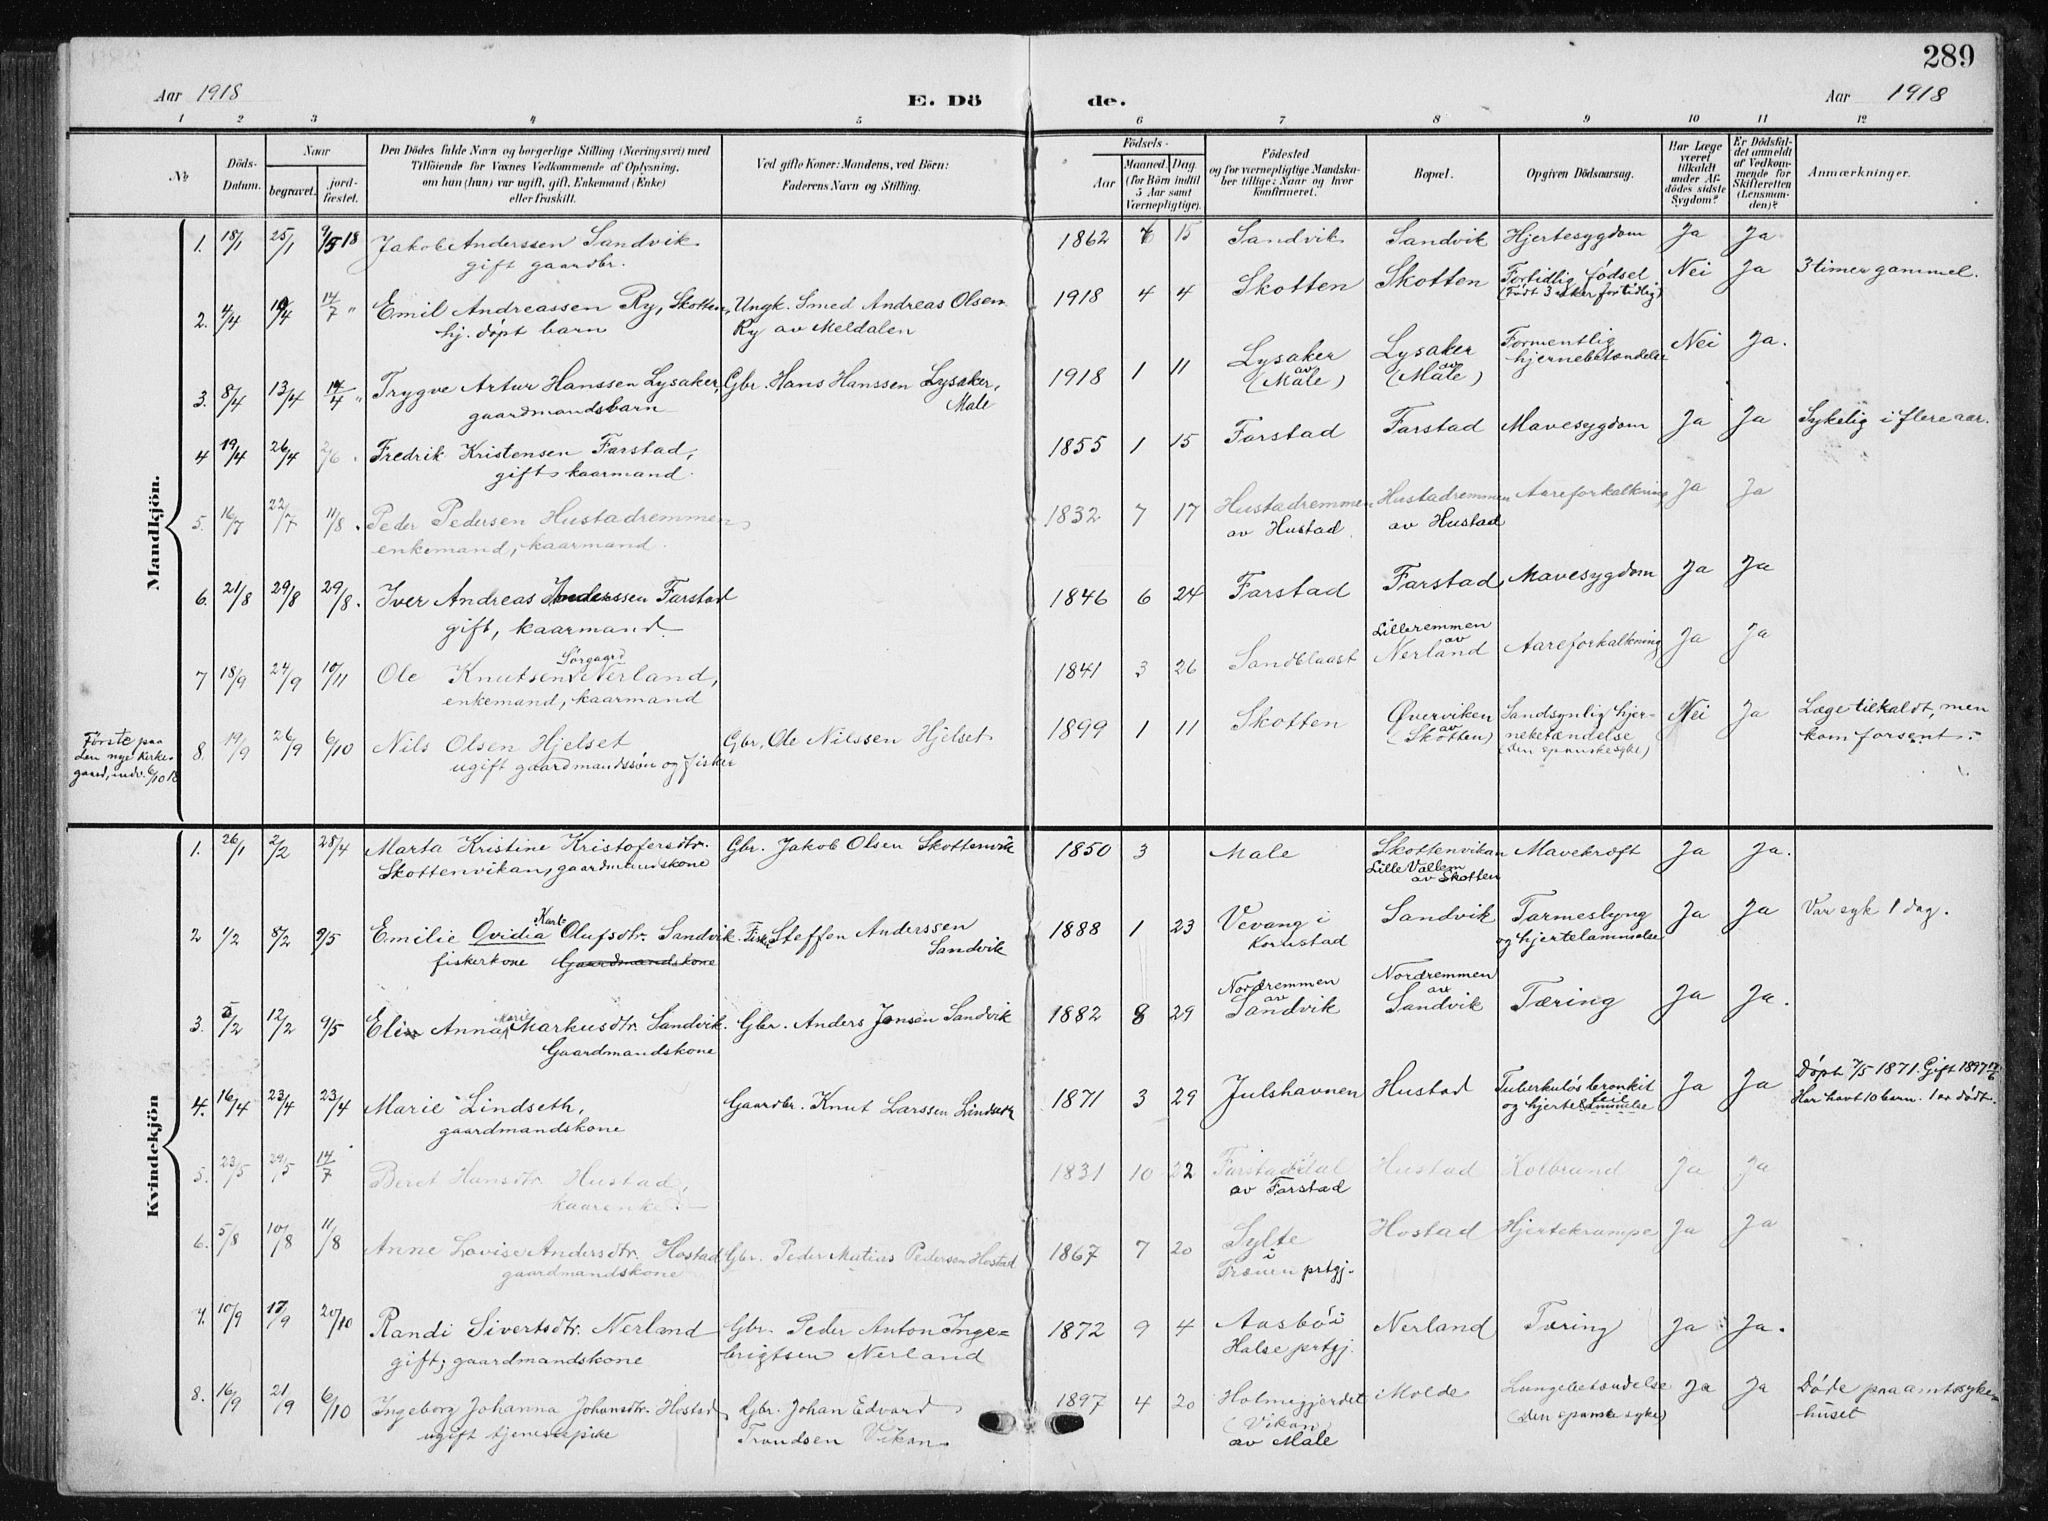 289
Aar 1918 E. Dö de. Aar 1918
1 2 3 4 5 6 7 8 9 10 11 12
No.
Döds-Datum.
Naar begravet. jord-fæstet.
Den Dödes fulde Navn og borgerlige Stilling (Næringsvei) med
Tilföiende for Voxnes Vedkommende af Oplysning,
om han (hun) var ugift, gift, Enkemand (Enke)
eller fraskilt.
Ved gifte Koner: Mandens, ved Börn:
Faderens Navn og Stilling.
Födsels-
Aar Maaned. Dag.
(for Börn indtil
5 Aar samt
Værnepligtige).
Födested
og for værnepligtige Mandska-
ber tillige: Naar og hvor
konfirmeret.
Bopæl.
Opgiven Dödsaarsag.
Har Læge
været
tilkaldt
under Af-
dödes sidste
Sygdom?
Er Dödsfal-
det anmeldt
af Vedkom-
mende for
Skifteretten
(Lensman-
den)?
Anmærkninger.
Mandkjön.
1. 18/1 25/1 9/5 18 Jakob Anderssen Sandvik 1862 15 Sandvik Sandvik Hjertesygdom Ja Ja
gift gaardbr.
2. 4/4 4/4 14/7 " Emil Andreassen Ry, Skotten, Ungk. Smed Andreas Olsen 1918 4 4 Skotten Skotten Fortidlig fødsel Nei Ja 3 timer gammel.
hj. døpt barn Ry av Meldalen (Født 3 uker fortidlig)
3. 8/4 13/4 14/4 " Trygve Artur Hanssen Lysaker, Gbr. Hans Hanssen Lysaker, 1918 1 11 Lysaker Lysaker Formentlig Nei Ja.
gaardmandsbarn Male av (Male) av (Male) hjernebetændelse
4 19/4 26/4 2/6 Fredrik Kristensen Farstad, 1855 1 15 Farstad Farstad Mavesygdom Ja Ja Sykelig i flere aar.
gift kaarmand.
5. 16/7 22/7 11/8 Peder Pedersen Hustadremmen 1832 7 17 Hustadremmen Hustadremmen Aareforkalkning Ja Ja
enkemand, kaarmand. av Hustad av Hustad
6. 21/8 29/8 29/8. Iver Andreas Anderssen Farstad 1846 6 24 Farstad Farstad Mavesygdom Ja Ja
gift, kaarmand.
7 18/9 24/9 10/11 Ole Knutsen Sørgaard Nerland, 1841 3 26 Sandblaast Lilleremmen av Nerland Aareforkalkning Ja Ja
enkemand, kaarmand
Første paa
den nye kirke-
gaard, indv. 6/10 18
8. 19/9 26/9 6/10 Nils Olsen Hjelset Gbr. Ole Nilssen Hjelset 1899 1 11 Skotten Øverviken Sandsynlig hjer- Nei Ja Læge tilkaldt, men
ugift gaardmandssøn og fisker av (Skotten) nebetændelse kom forsent.
(den spanske syke)
Kvindekjön
1. 26/1 2/2 28/4 Marta Kristine Kristofersdtr. Gbr. Jakob Olsen Skottenvik 1850 3 Male Skottenvikan Mavekræft Ja Ja.
Skottenvikan, gaardmandskone Lille Vallem av Skotten
2 1/2 8/2 9/5 Emilie Ovidia Karl- Olufsdtr. Sandvik. Fisk. Steffen Anderssen 1888 1 23 Vevang i Sandvik Tarmeslyng Ja Ja Var syk 1 dag.
fiskerkone Gaardmandskone Sandvik Kornstad og hjertelammelse
3. 5/2 12/2 9/5 Elin Anna Marie Markusdtr. Sandvik. Gbr. Anders Jonsen Sandvik 1882 8 29 Nordremmen av Sandvik Nordremmen av Sandvik Tæring Ja Ja.
Gaardmandskone
4. 16/4 23/4 23/4 Marie Lindseth, Gaardbr. Knut Larssen Lindseth 1871 3 29 Julshavnen Hustad Tuberkuløs bronkit Ja Ja Døpt 7/5 1871. Gift 1897
gaardmandskone og hjertelammelse feil Har havt 10 barn. 1 av dødt.
5. 23/5 29/5 14/7 Beret Hansdtr. Hustad, 1831 10 22 Farstaddal Hustad Kolbrand Ja Ja
kaarenke. av Farstad
6. 5/8 10/8 11/8 Anne Lovise Andersdtr. Hostad Gbr. Peder Matias Pedersen Hostad 1867 7 20 Sylte Hostad Hjertekrampe Ja Ja
gaardmandskone i Frænen prtgj.
7. 10/9 17/9 20/10 Randi Sivertsdtr. Nerland Gbr. Peder Anton Inge- 1872 9 4 Aasbö i Nerland Tæring Ja Ja.
gift, gaardmandskone brigtsen Nerland Halse prtgj.
8. 16/9 21/9 6/10 Ingeborg Johanna Johansdtr. Hostad Gbr. Johan Edvard 1897 4 20 Holmegjerdet Molde Lungebetændelse Ja Ja Døde paa amtssyke-
ugift tjenestepike Trondsen Vikan (Vikan) (den spanske syke) huset
av Male